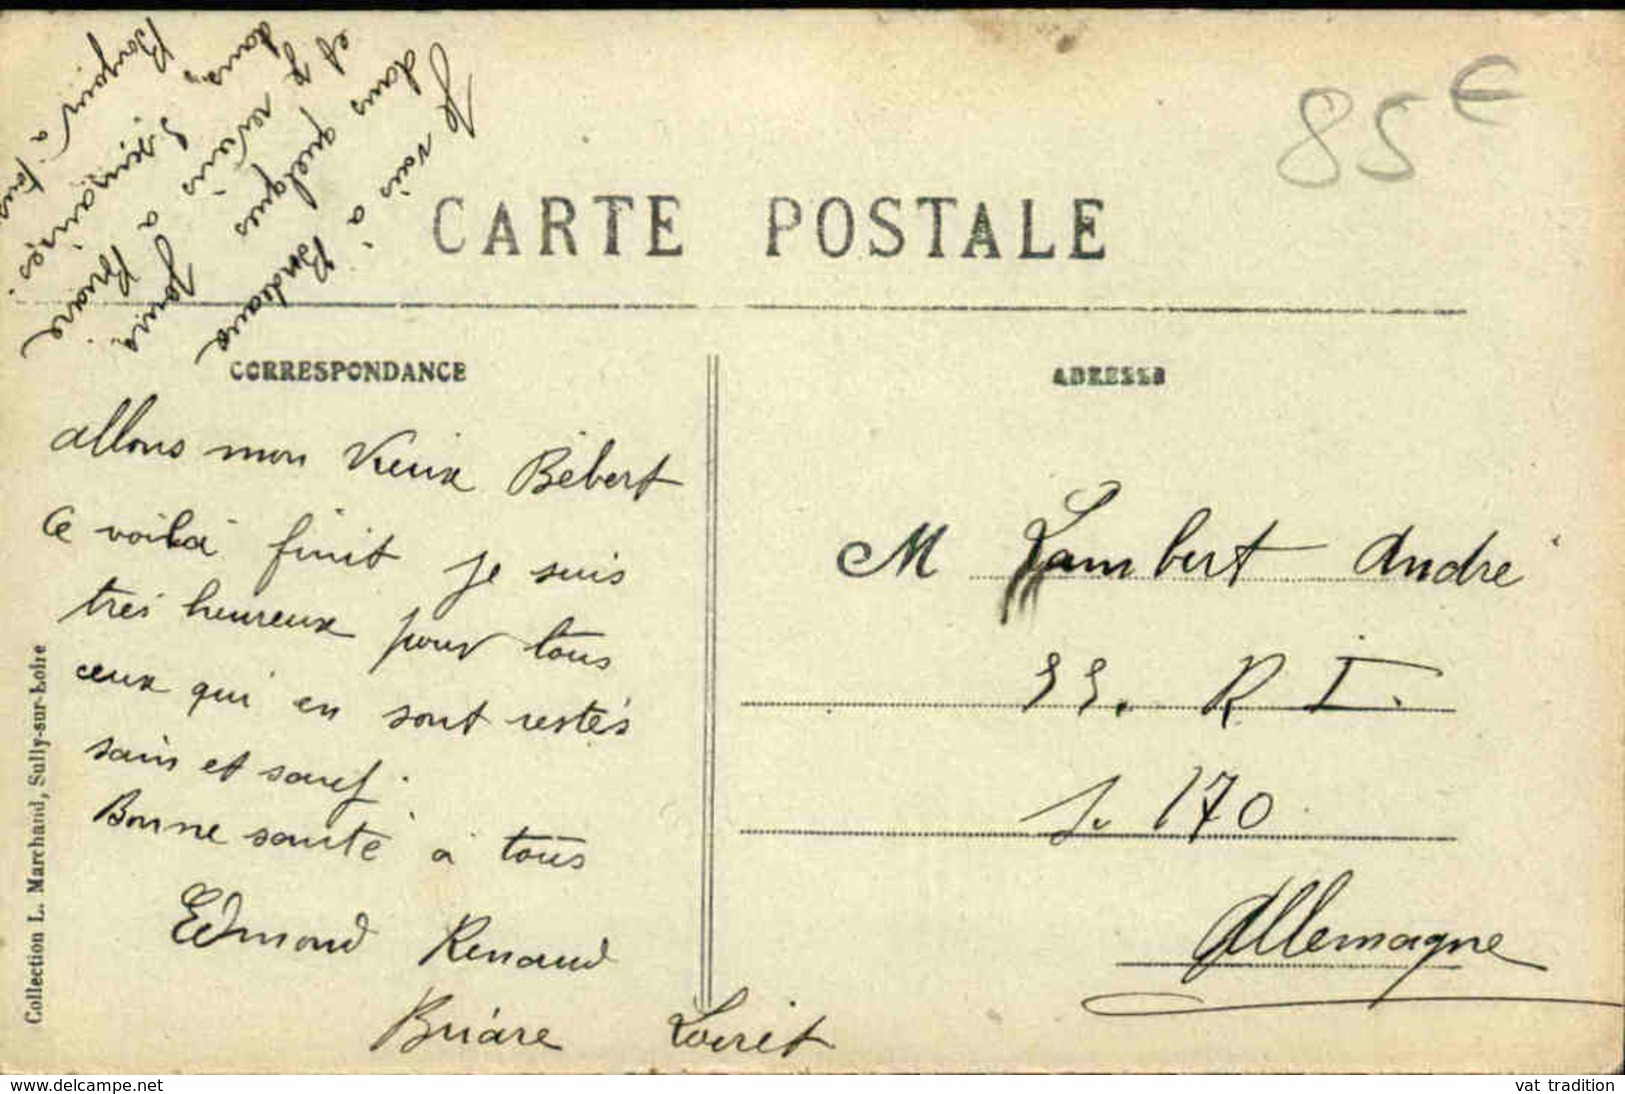 Je vais à Bordeaux
dans quelques jours
et je reviens à Briare
dans 3 semaines.
Bonjour à tous
85 €
CARTE POSTALE
CORRESPONDANCE
ADRESSE
allons mon Vieux Bébert
Ce voilà finit je suis
très heureux pour tous
ceux qui en sont restés
sain et sauf.
Bonne santé à tous
Edmond Renaud
Briare Loiret
M Lambert André
33. R I.
S. 170
Allemagne
Collection L. Marchand, Sully-sur-Loire
www.delcampe.net
vat tradition